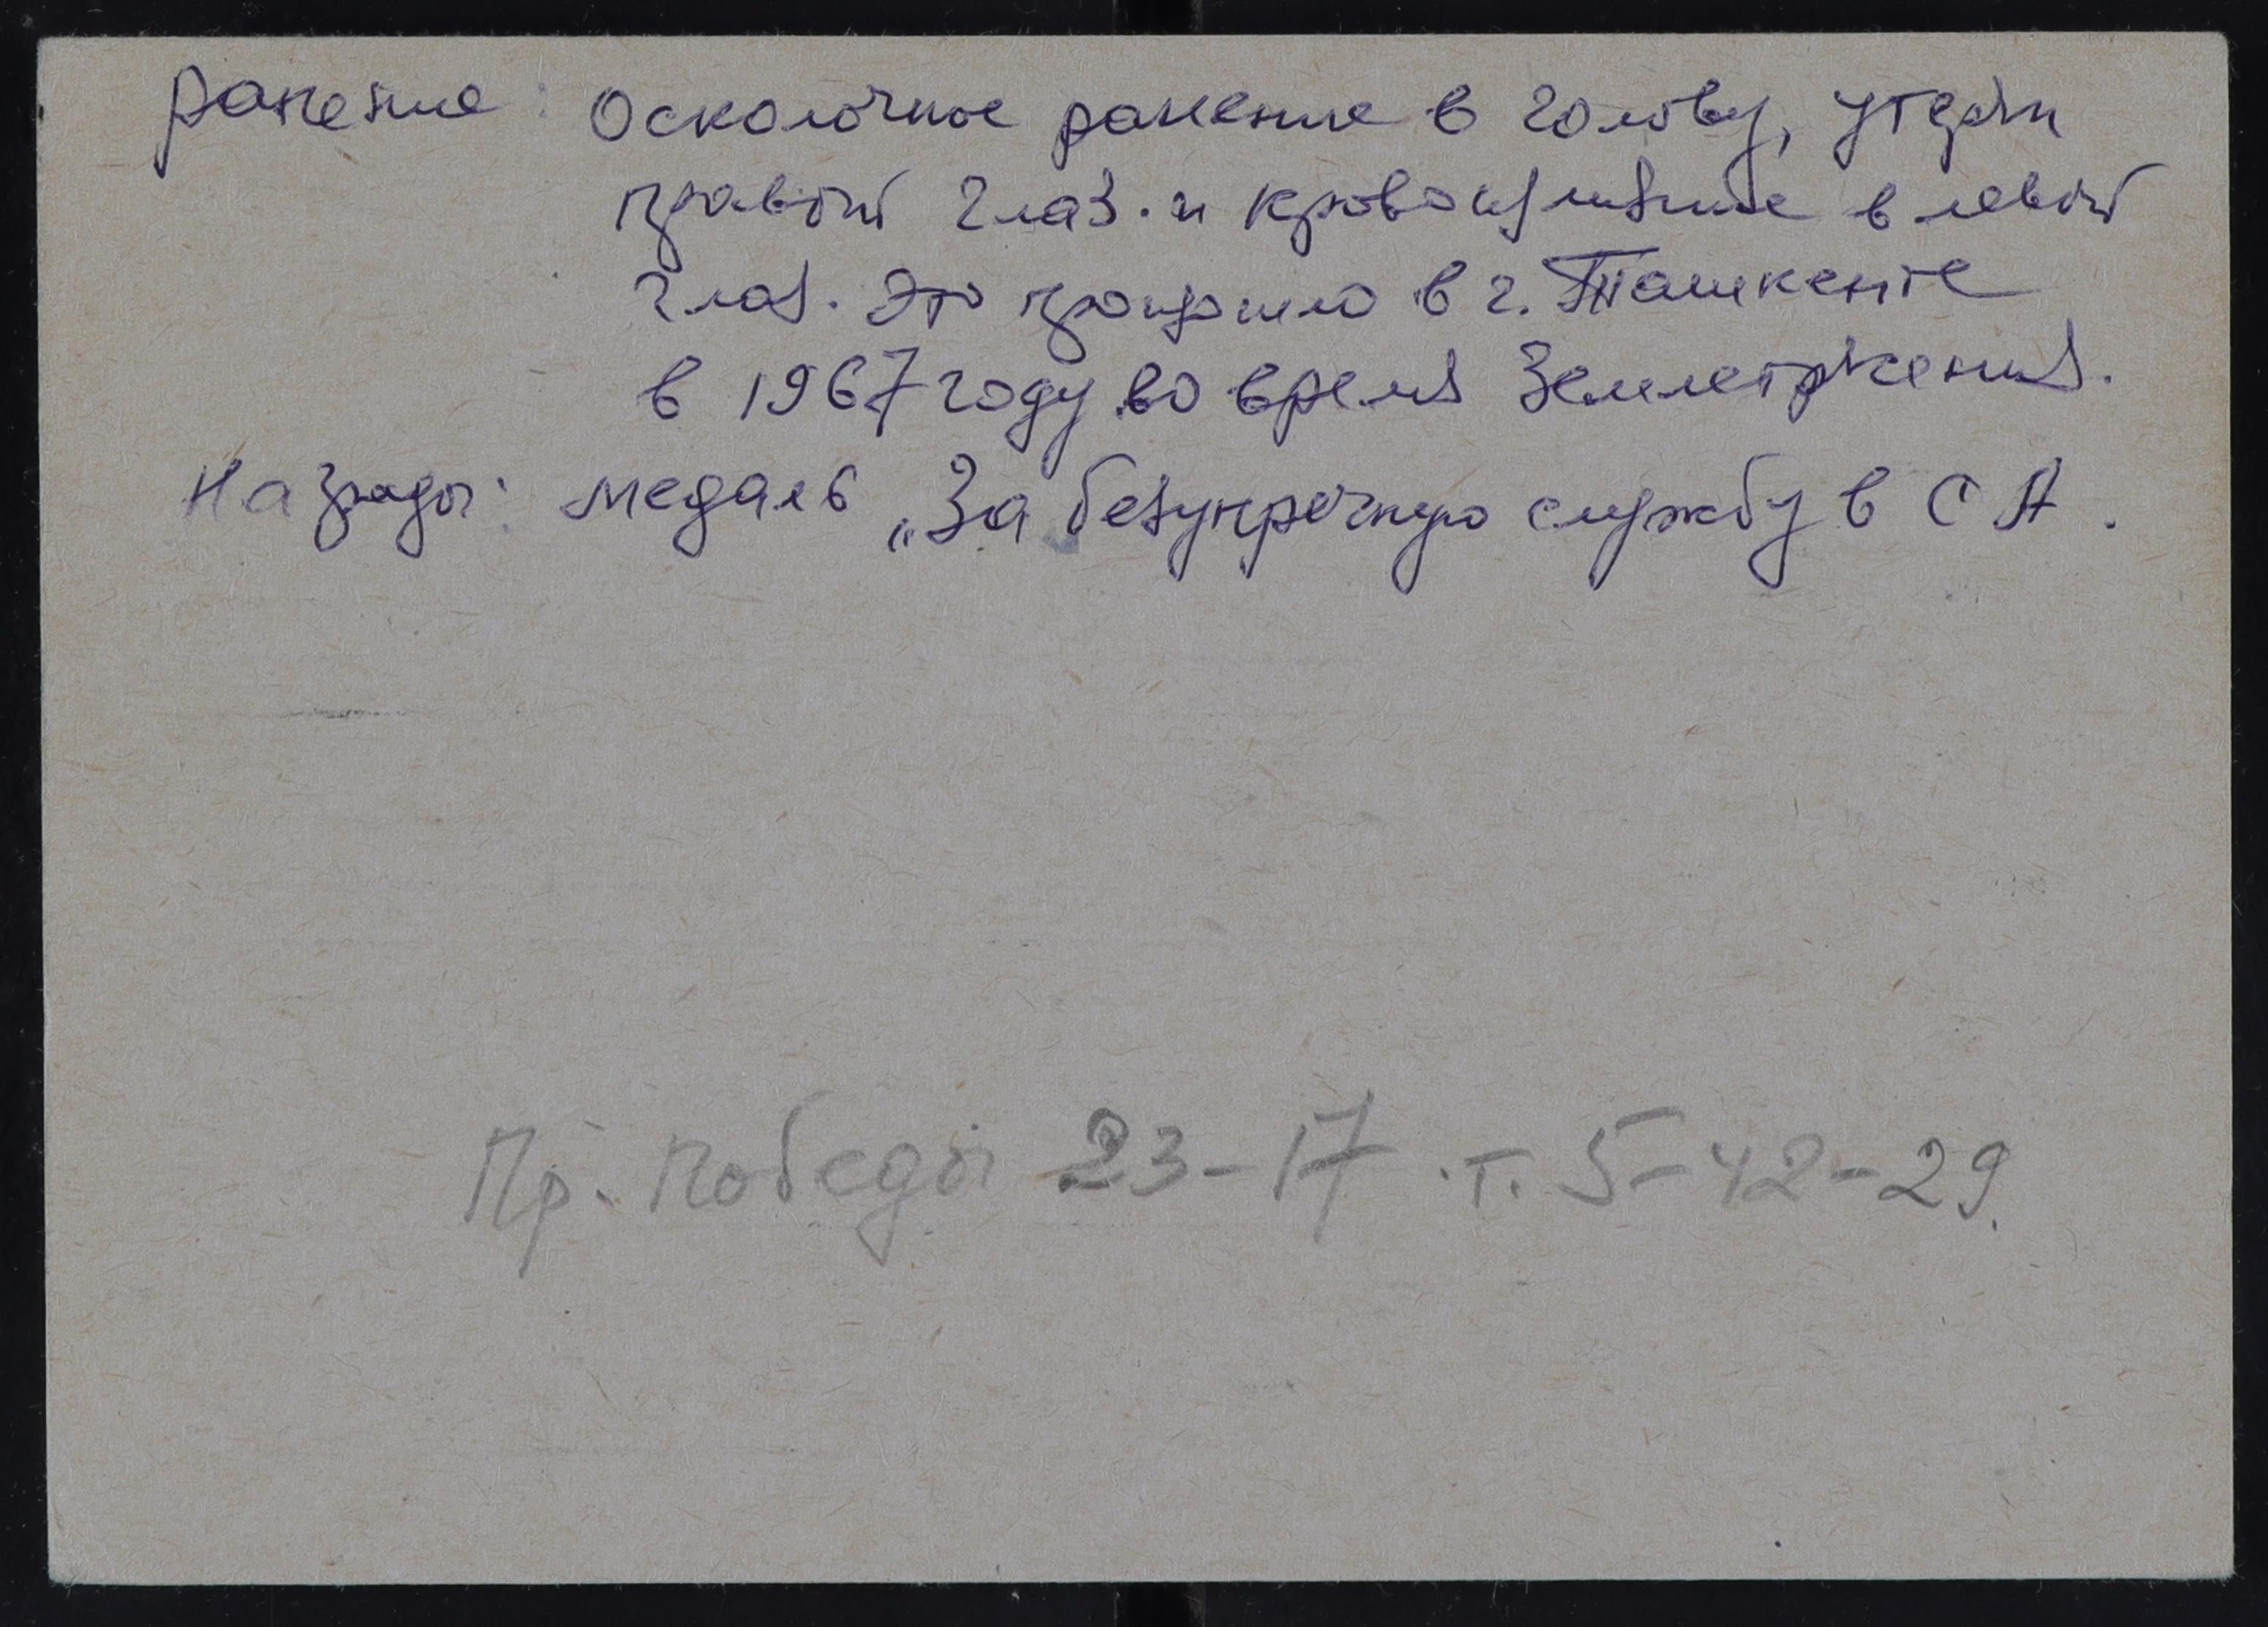 ранение: Осколочное ранение в голову, утерян
правый глаз. и кровоизлияние в левый
глаз. Это произошло в г. Ташкенте
в 1967 году во время землетряжения.
Награды: медаль „За безупречную службу в С А.
Пр. Победы 23-17 т. 5-42-29.